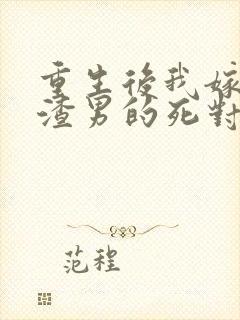 重生後我嫁
渣男的死對
范程